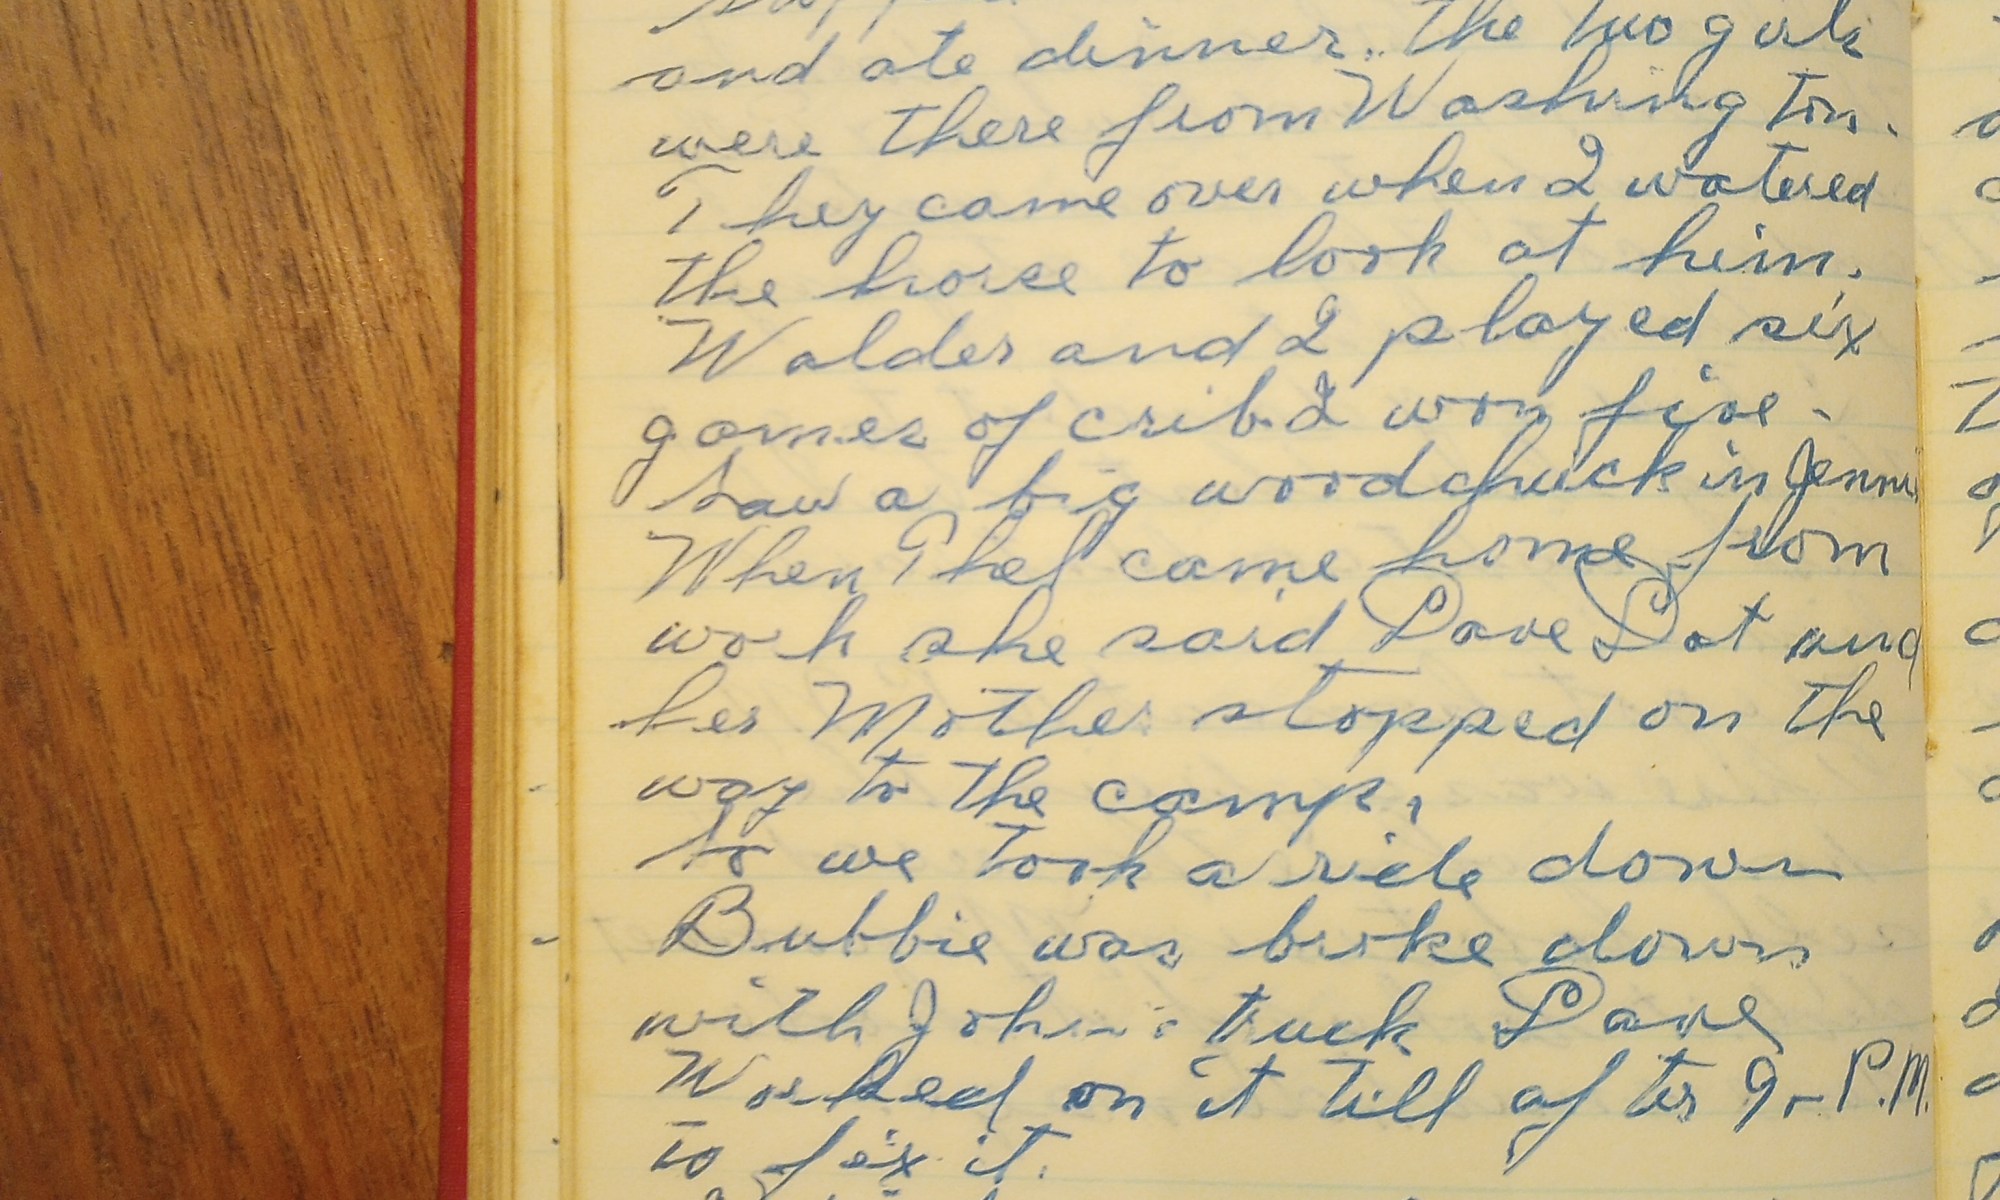 and ate dinner. The two girls
were there from Washington.
They came over when I watered
the horse to look at him.
Walder and I played six
games of crib. I won five.
Saw a big woodchuck in
When Thel came home from
work she said Dave Dot and
her Mother stopped on the
way to the camp.
So we took a ride down
Bubbie was broke down
with John's truck Dave
Worked on it till after 9 - P.M.
to fix it.